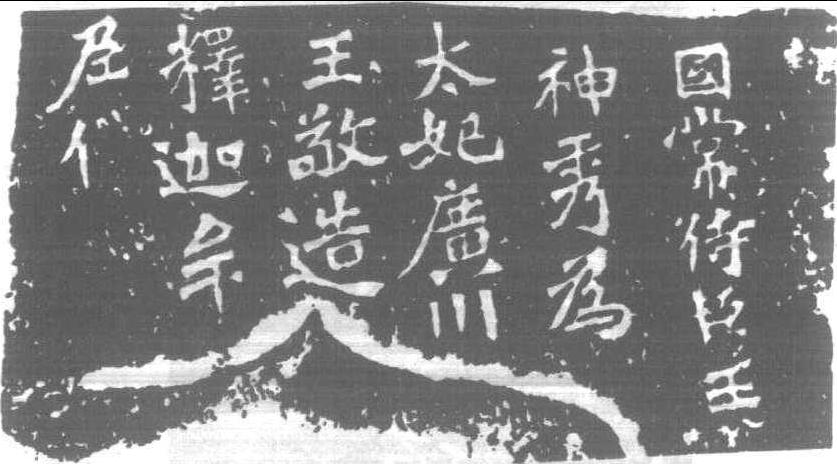 國常侍臣王
神秀為
太妃廣川
王敬造
釋迦牟
尼